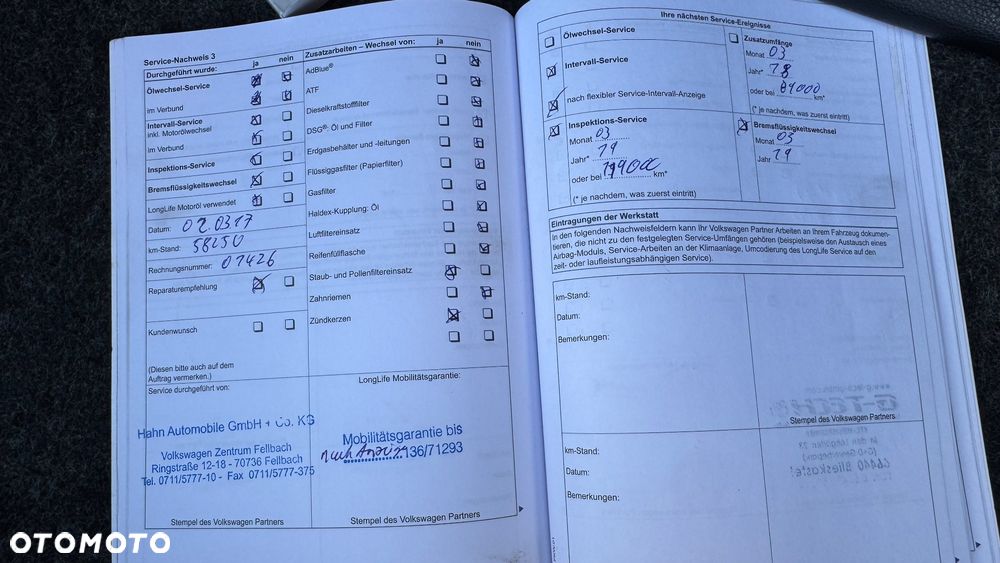 Service-Nachweis 3
Durchgeführt wurde: ja nein
Ölwechsel-Service
im Verbund
Intervall-Service
inkl. Motorölwechsel
im Verbund
Inspektions-Service
Bremsflüssigkeitswechsel
LongLife Motoröl verwendet
Datum: 02.03 17
km-Stand: 58250
Rechnungsnummer: 07426
Reparaturempfehlung
Kundenwunsch
(Diesen bitte auch auf dem
Auftrag vermerken.)
Service durchgeführt von:
Hahn Automobile GmbH + Co. KG
Volkswagen Zentrum Fellbach
Ringstraße 12-18 - 70736 Fellbach
Tel. 0711/5777-10 - Fax 0711/5777-375
Stempel des Volkswagen Partners
Zusatzarbeiten – Wechsel von: ja nein
AdBlue®
ATF
Dieselkraftstofffilter
DSG®: Öl und Filter
Erdgasbehälter und -leitungen
Flüssiggasfilter (Papierfilter)
Gasfilter
Haldex-Kupplung: Öl
Luftfiltereinsatz
Reifenfüllflasche
Staub- und Pollenfiltereinsatz
Zahnriemen
Zündkerzen
LongLife Mobilitätsgarantie:
Mobilitätsgarantie bis
nach Anzeige 136/71293
Stempel des Volkswagen Partners
Ihre nächsten Service-Ereignisse
Ölwechsel-Service
Intervall-Service
nach flexibler Service-Intervall-Anzeige
Zusatzumfänge
Monat 03
Jahr* 18
oder bei 84000 km*
(* je nachdem, was zuerst eintritt)
Inspektions-Service
Monat 03
Jahr* 19
oder bei 119000 km*
(* je nachdem, was zuerst eintritt)
Bremsflüssigkeitswechsel
Monat 03
Jahr 19
Eintragungen der Werkstatt
In den folgenden Nachweisfeldern kann Ihr Volkswagen Partner Arbeiten an Ihrem Fahrzeug dokumen-
tieren, die nicht zu den festgelegten Service-Umfängen gehören (beispielsweise den Austausch eines
Airbag-Moduls, Service-Arbeiten an der Klimaanlage, Umcodierung des LongLife Service auf den
zeit- oder laufleistungsabhängigen Service).
km-Stand:
Datum:
Bemerkungen:
Stempel des Volkswagen Partners
km-Stand:
Datum:
Bemerkungen:
OTOMOTO